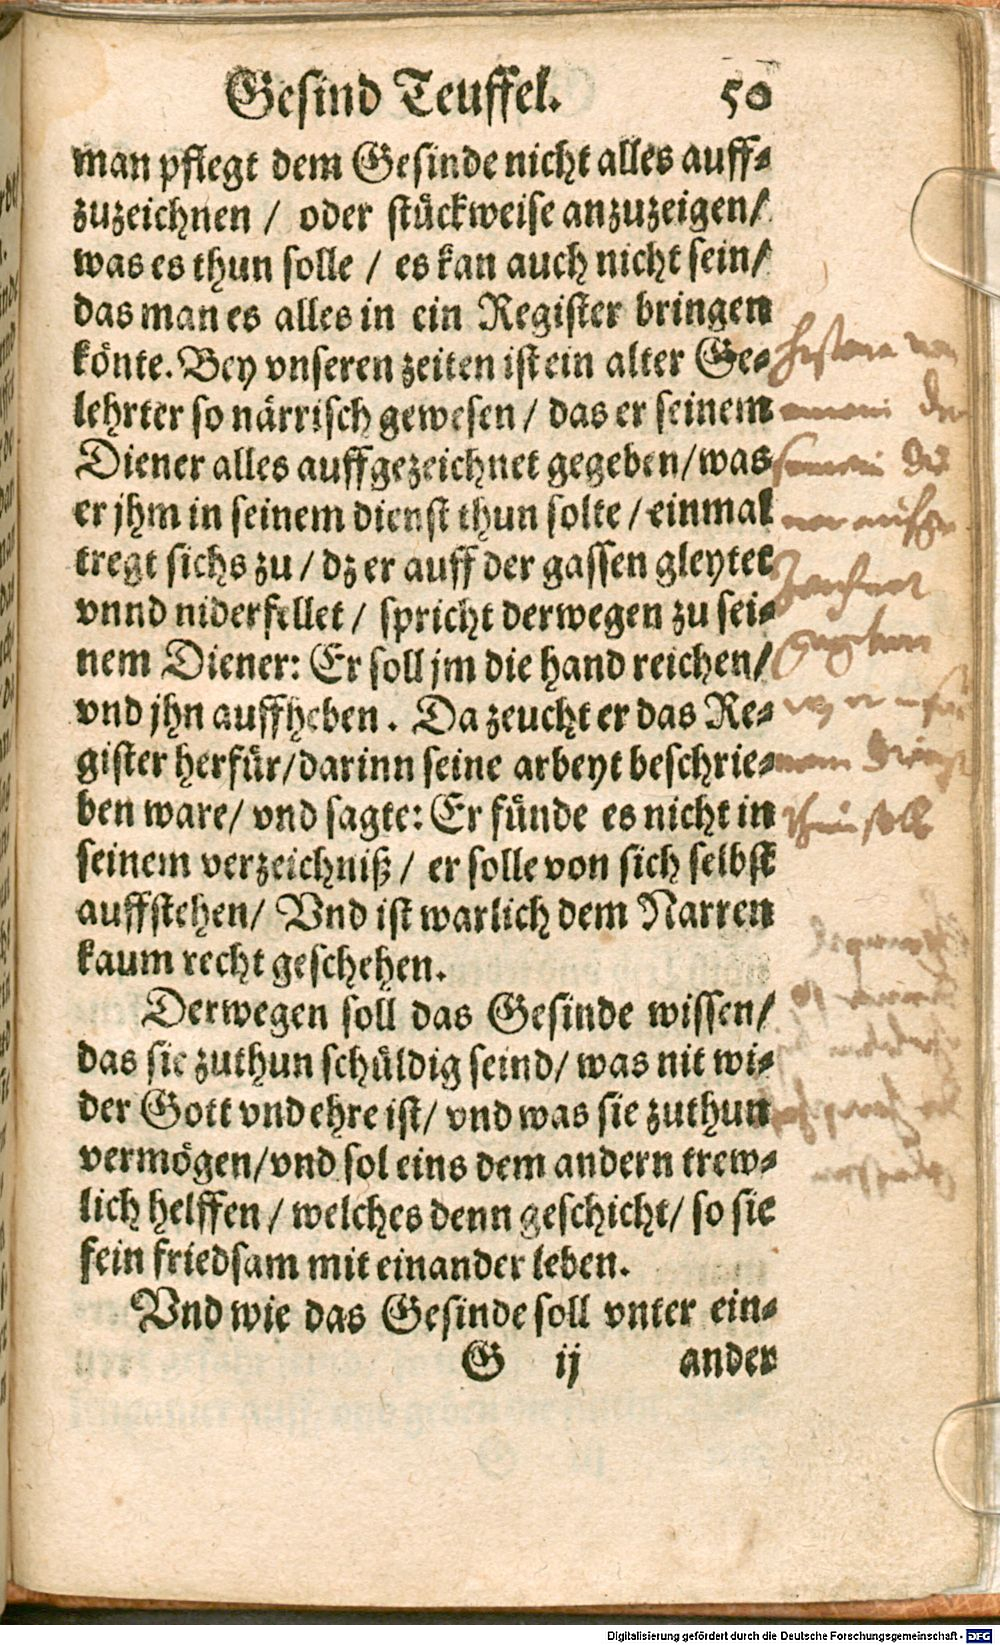 Gesind Teuffel. 50
man pflegt dem Gesinde nicht alles auff-
zuzeichnen / oder stückweise anzuzeigen/
was es thun solle / es kan auch nicht sein/
das man es alles in ein Register bringen
könte. Bey vnseren zeiten ist ein alter Ge-
lehrter so närrisch gewesen / das er seinem
Diener alles auffgezeichnet gegeben/was
er jhm in seinem dienst thun solte / einmal
tregt sichs zu / dz er auff der gassen gleytet
vnnd niderfellet / spricht derwegen zu sei-
nem Diener: Er soll jm die hand reichen/
vnd jhn auffheben. Da zeucht er das Re-
gister herfür/darinn seine arbeyt beschrie-
ben ware/ vnd sagte: Er fünde es nicht in
seinem verzeichniß / er solle von sich selbst
auffstehen/ Vnd ist warlich dem Narren
kaum recht geschehen.
Derwegen soll das Gesinde wissen/
das sie zuthun schüldig seind/ was nit wi-
der Gott vnd ehre ist/ vnd was sie zuthun
vermögen/vnd sol eins dem andern trew-
lich helffen / welches denn geschicht/ so sie
fein friedsam mit einander leben.
Vnd wie das Gesinde soll vnter ein-
G ij ander
Historia von
einem der
seinem die
ner aufge
zeichnet
gegeben
thun soll
Digitalisierung gefördert durch die Deutsche Forschungsgemeinschaft - DFG